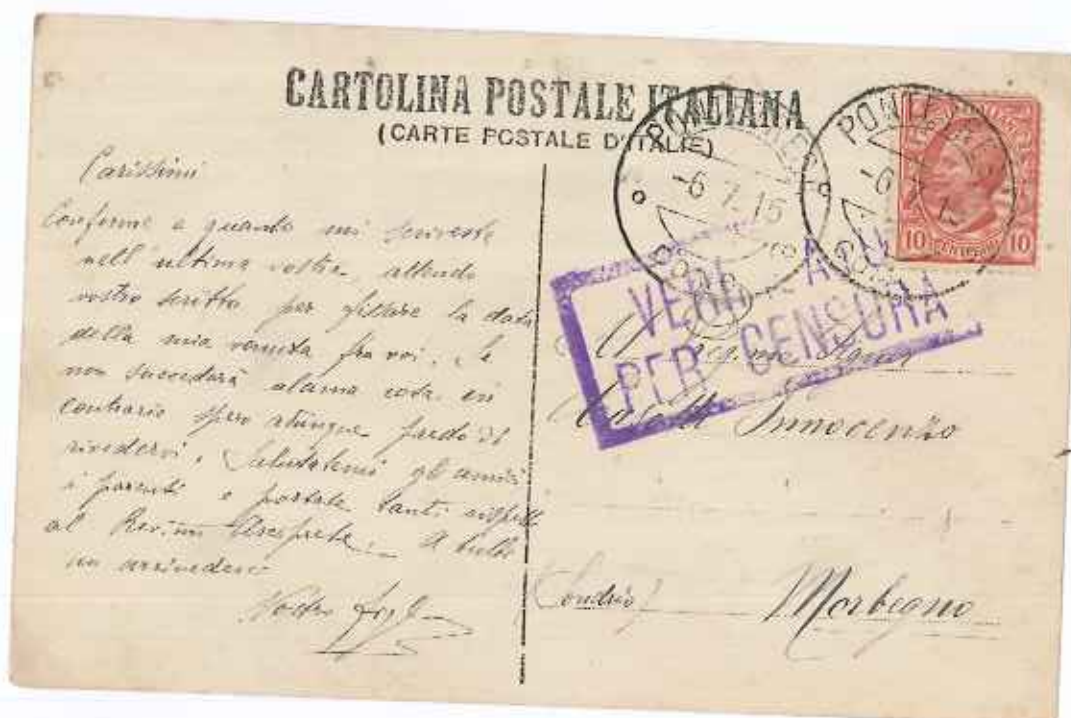 CARTOLINA POSTALE ITALIANA
(CARTE POSTALE D'ITALIE)
Carissimi
Conforme a quanto mi scriveste
nell'ultima vostra, attendo
vostro scritto per fissare la data
della mia venuta fra voi. Se
non succederà alcuna cosa in
contrario spero
rivedervi. Salutatemi gli amici
i parenti e portate tanti rispetti
al Rev.mo Arciprete. A tutti
un arrivederci
Vostro
-6 7 15
-6 7 15
10 CENTESIMI 10
PER CENSURA
Innocenzo
(Sondrio) Morbegno